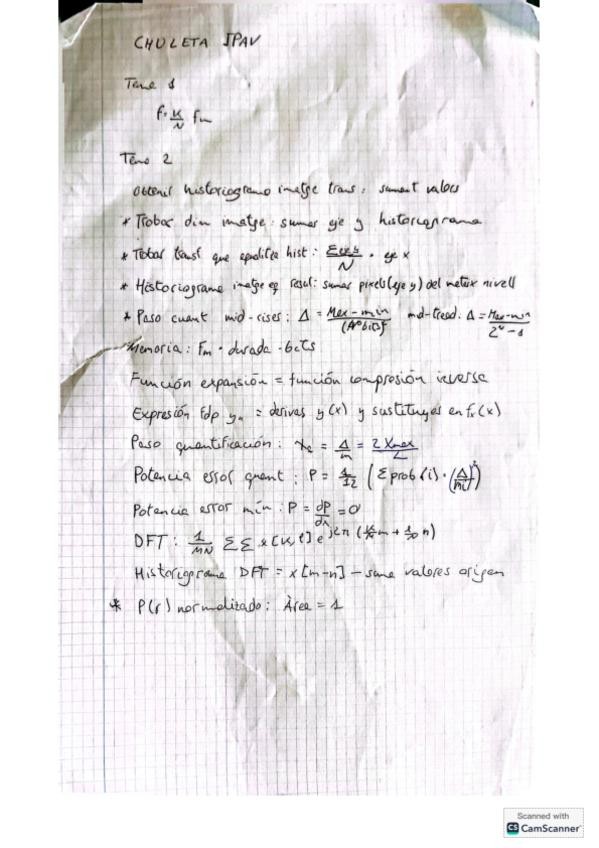 CHULETA IPAV
Tema 1
f = K/N fm
Tema 2
Obtenir historiograma imatge trans: sumant valors
* Trobar dim imatge: sumar eje y historiograma
* Trobar transf que equalitza hist: /N · eje x
* Historiograma imatge eq resul: sumar pixels (eje y) del mateix nivell
* Paso cuant mid-rises: Δ = Max-min/ mid-tread: Δ = Max-min/2^-1
Memoria: Fm · durada · bits
Función expansión = función compresión inversa
Expresión Fdp yn = derivas y(x) y sustituyes en fx(x)
Paso quantificación: = Δ/m = 2 Xmax/L
Potencia error quant: P = 1/12 (Σ prob(i) · (Δ/mi)²)
Potencia error mín: P = dP/dx = 0
DFT: 1/MN ΣΣ x[k,l] e^j2π (m + n)
Historiograma DFT = x[m-n] - suma valores origen
* P(r) normalizado: Àrea = 1
Scanned with
CS CamScanner